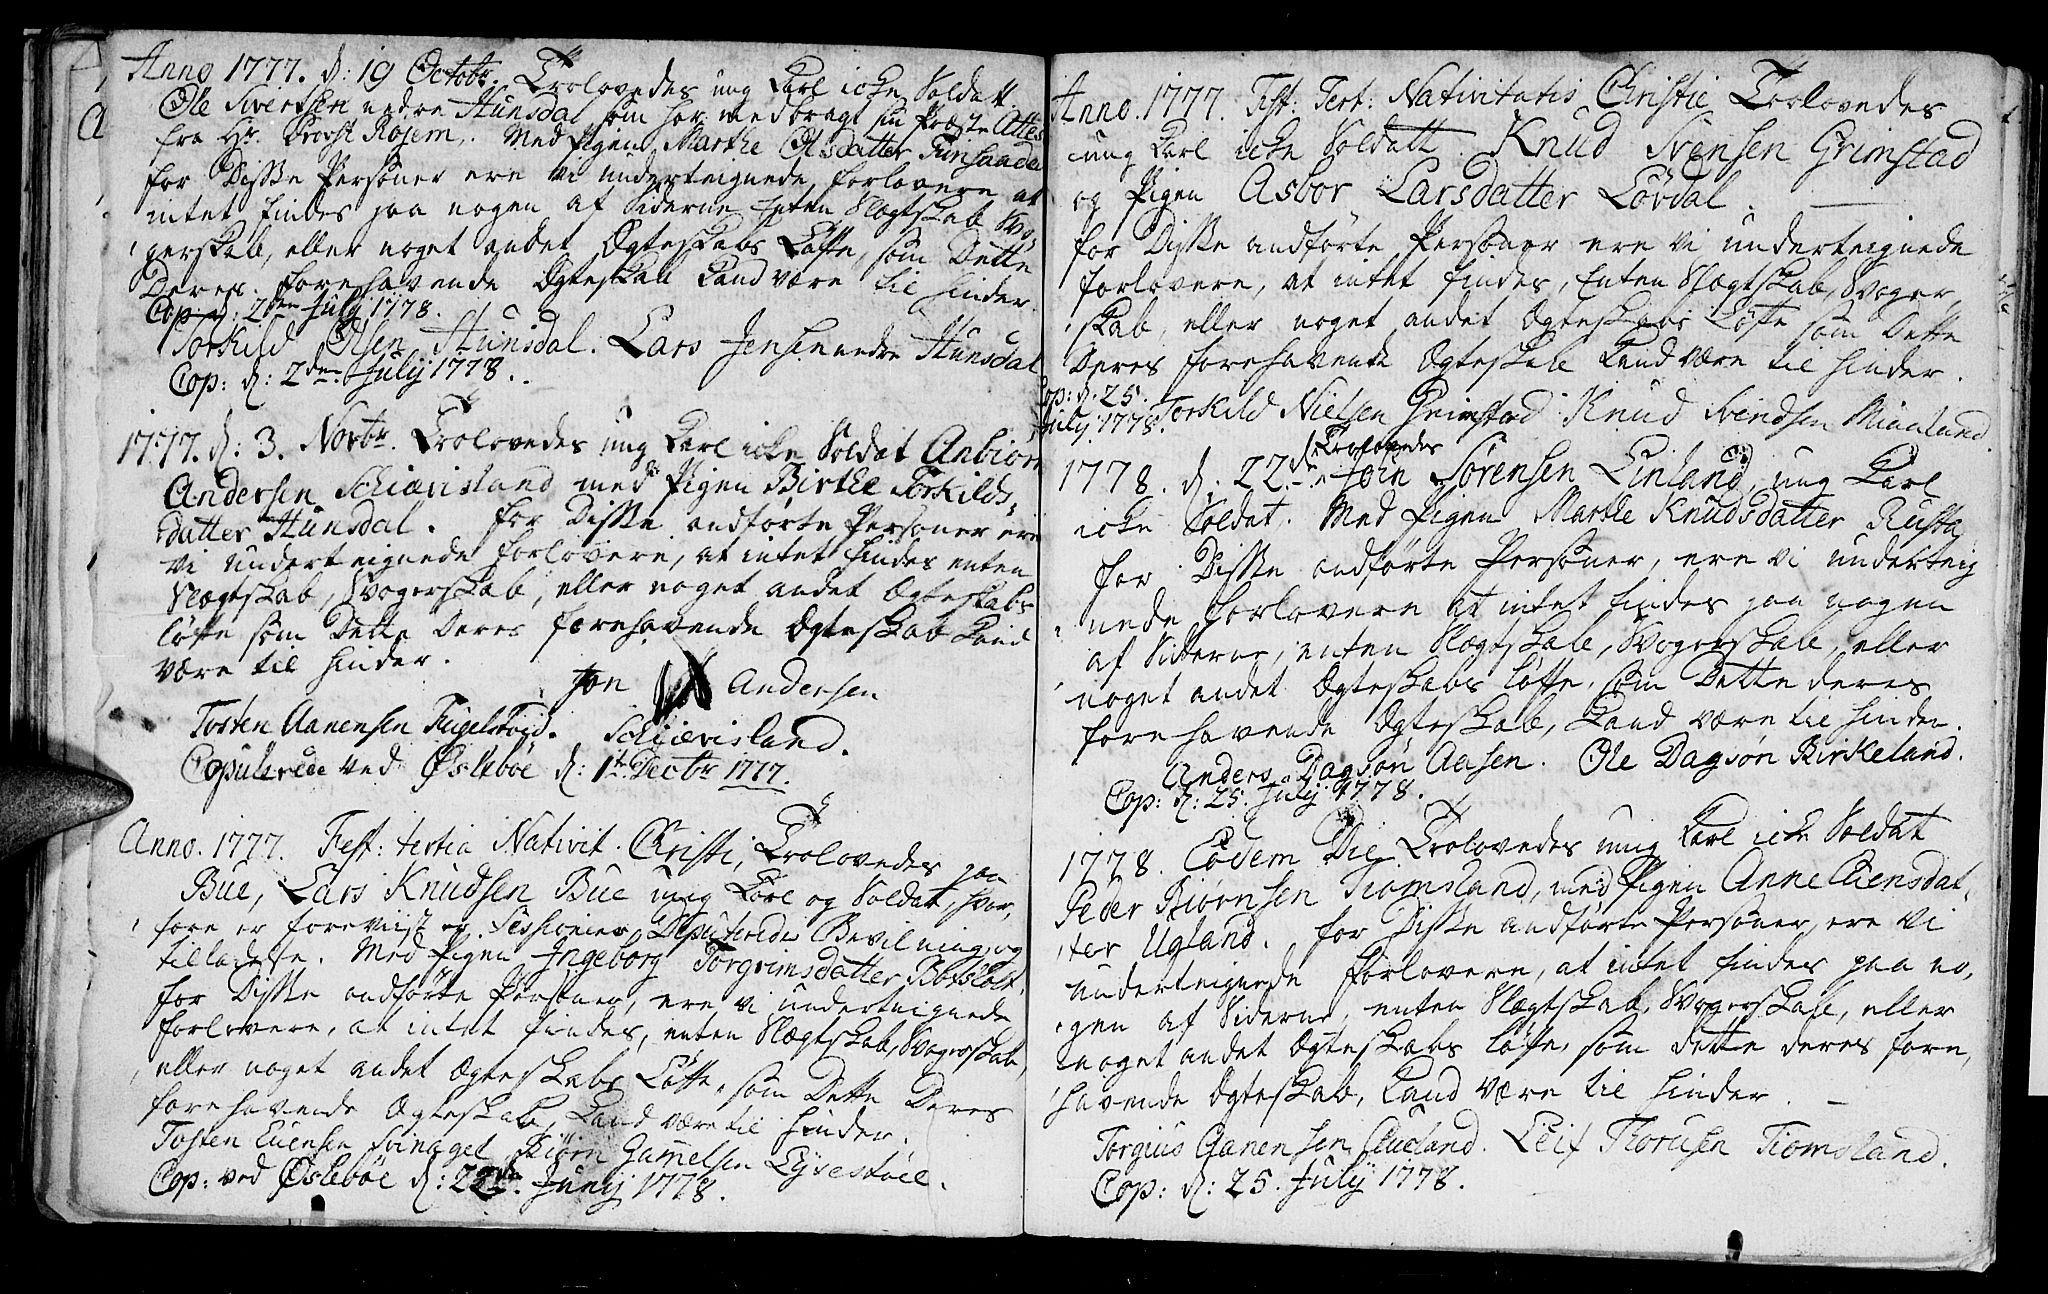 Anno 1777. d: 19 Octobr. Trolovedes ung Karl icke Soldatt
Ole Sivertsen nedre Hunsdal, som har medbragt sin Præste Attest
fra Hr. Provst Rosem. Med Pigen Marthe Olsdatter
for Disse Personer ere vi underteignede forlovere at
intet findes paa nogen af Siderne enten Slægtskab, Svo-
gerskab, eller noget andet Ægteskabs Løfte, som Dette
Deres forehavende Ægteskab kand være til hinder.
Cop: d: 2den July 1778.
Torkild Olsen Hunsdal. Lars Jensen nedre Hunsdal
Cop: d: 2den July 1778.
1777. d: 3. Novbr. Trolovedes ung Karl icke Soldat Anbiørn
Andersen Schiævisland med Pigen Birthe Torkilds-
datter Hunsdal. for Disse andførte Personer ere
vi underteignede forlovere, at intet findes enten
Slægtskab, Svogerskab, eller noget andet Ægteskabs
løfte som Dette Deres forehavende Ægteskab kand
være til hinder.
Jon Andersen
Tosten Aanensen Fugelstvid. Schiævisland.
Copulerede ved Øslebøe d: 1te Decbr 1777.
Anno. 1777. Fest: tertia Nativit. Christi, Trolovedes paa
Bue, Lars Knudsen Bue ung Karl og Soldat, hvor-
fore er foreviist er Sessionens Deputeredes Bevilning og
tilladelse. Med Pigen Ingeborg Torgrimsdatter
for Disse andførte Personer, ere vi underteignede
forlovere, at intet findes, enten Slægtskab, Svogerskab,
eller noget andet Ægteskabs Løfte, som Dette Deres
forehavende Ægteskab, kand være til hinder.
Tosten Evensen Svinaget Biørn Gamelsen Lysestøel.
Cop: ved Øslebøe d: 22de Junij 1778.
Anno. 1777. Fest: Tert: Nativitatis Christie Trolovedes
ung Karl icke Soldatt Knud Svensen Grimstad
og Pigen Asbor Larsdatter Løvdal.
for Disse andførte Personer ere vi underteignede
forlovere, at intet findes, Enten Slægtskab, Svoger-
skab, eller noget andet Ægteskabs Løfte som Dette
Deres forehavende Ægteskab kand være til hinder.
Cop: d. 25.
July 1778. Torkild Nielsen Grimstad. Knud Svendsen Miaaland.
Trolovedes
1778. d. 22. Jan. Jøen Sørensen Einland, ung Karl
icke Soldat. Med Pigen Marthe Knudsdatter Rusta
for Disse andførte Personer, ere vi underteig
nede forlovere at intet findes paa nogen
af Siderne, enten Slægtskab, Svogerskab, eller
noget andet Ægteskabs løfte, som Dette deres
forehavende Ægteskab, kand være til hinder.
Anders Dagsøn Aasen. Ole Dagsøn Birkeland.
Cop: d: 25. July 1778.
1778. Eodem Die Trolovedes ung Karl icke Soldat
Peder Biørnsen Tiomsland, med Pigen Anne Evensdat-
ter Ugland. for Disse andførte Personer, ere vi
underteignede forlovere, at intet findes paa no-
gen af Siderne, enten Slægtskab, Svogerskab, eller
noget andet Ægteskabs løfte, som dette deres fore-
havende Ægteskab, kand være til hinder.
Torgius Aanensen Aueland. Leif Thorusen Tiomsland.
Cop: d: 25. July 1778.